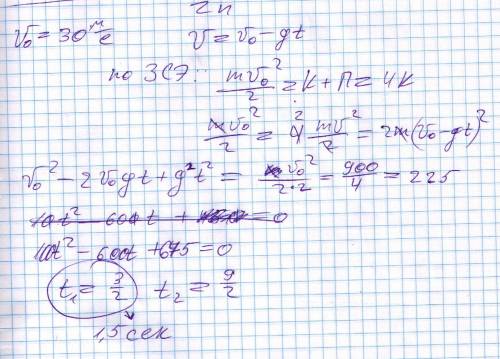 2п
v₀ = 30 м/с    v = v₀ - gt
по ЗСЭ: mv₀²/2 = К + П = 4К
mv₀²/2 = 4 mv²/2 = 2m(v₀ - gt)²
v₀² - 2v₀gt + g²t² = v₀²/2·2 = 900/4 = 225
10t² - 600t + = 0
10t² - 600t + 675 = 0
t₁ = 3/2    t₂ = 9/2
1,5 сек